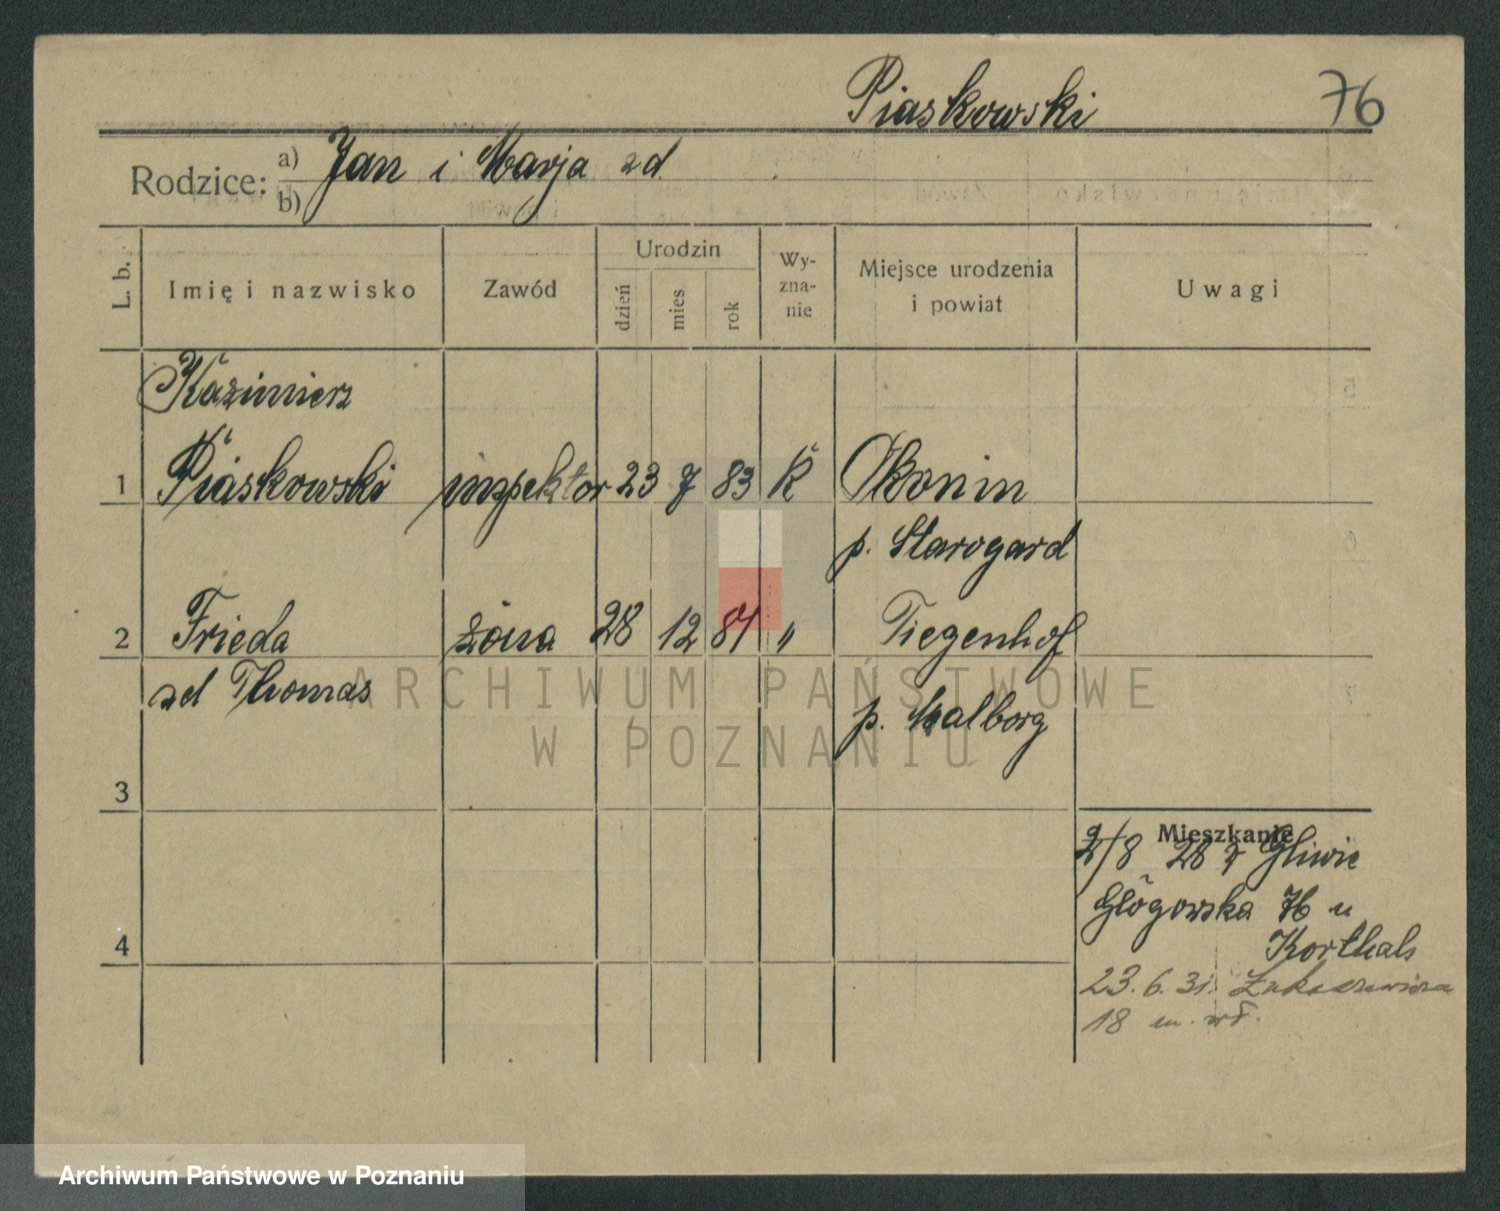 Piaskowski 76
Rodzice: a) Jan i Marja zd
b)
L. b. Imię i nazwisko Zawód Urodzin Wy-zna-nie Miejsce urodzenia i powiat Uwagi
dzień mies rok
Kazimierz
1 Piaskowski inspektor 23 7 83 K Okonin
p. Starogard
2 Frieda żona 28 12 81 " Tiegenhof
zd Thomas p. Malborg
ARCHIWUM PAŃSTWOWE
W POZNANIU
3
Mieszkanie
2/8 28 z Gliwic
Głogowska 76 u
4 Korthals
23.6.31. Łukaszewicza
18 m. wł.
Archiwum Państwowe w Poznaniu